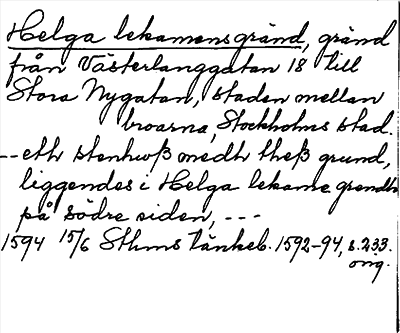 Helga lekamensgränd, gränd
från Västerlånggatan 18 till
Stora Nygatan, staden mellan
broarna, Stockholms stad.
-- eth stenhwß medh theß grund,
liggendes i Helga lekame grendh
på södre siden, ---
1594 15/6 Sthms tänkeb. 1592-94, s. 233.
orig.